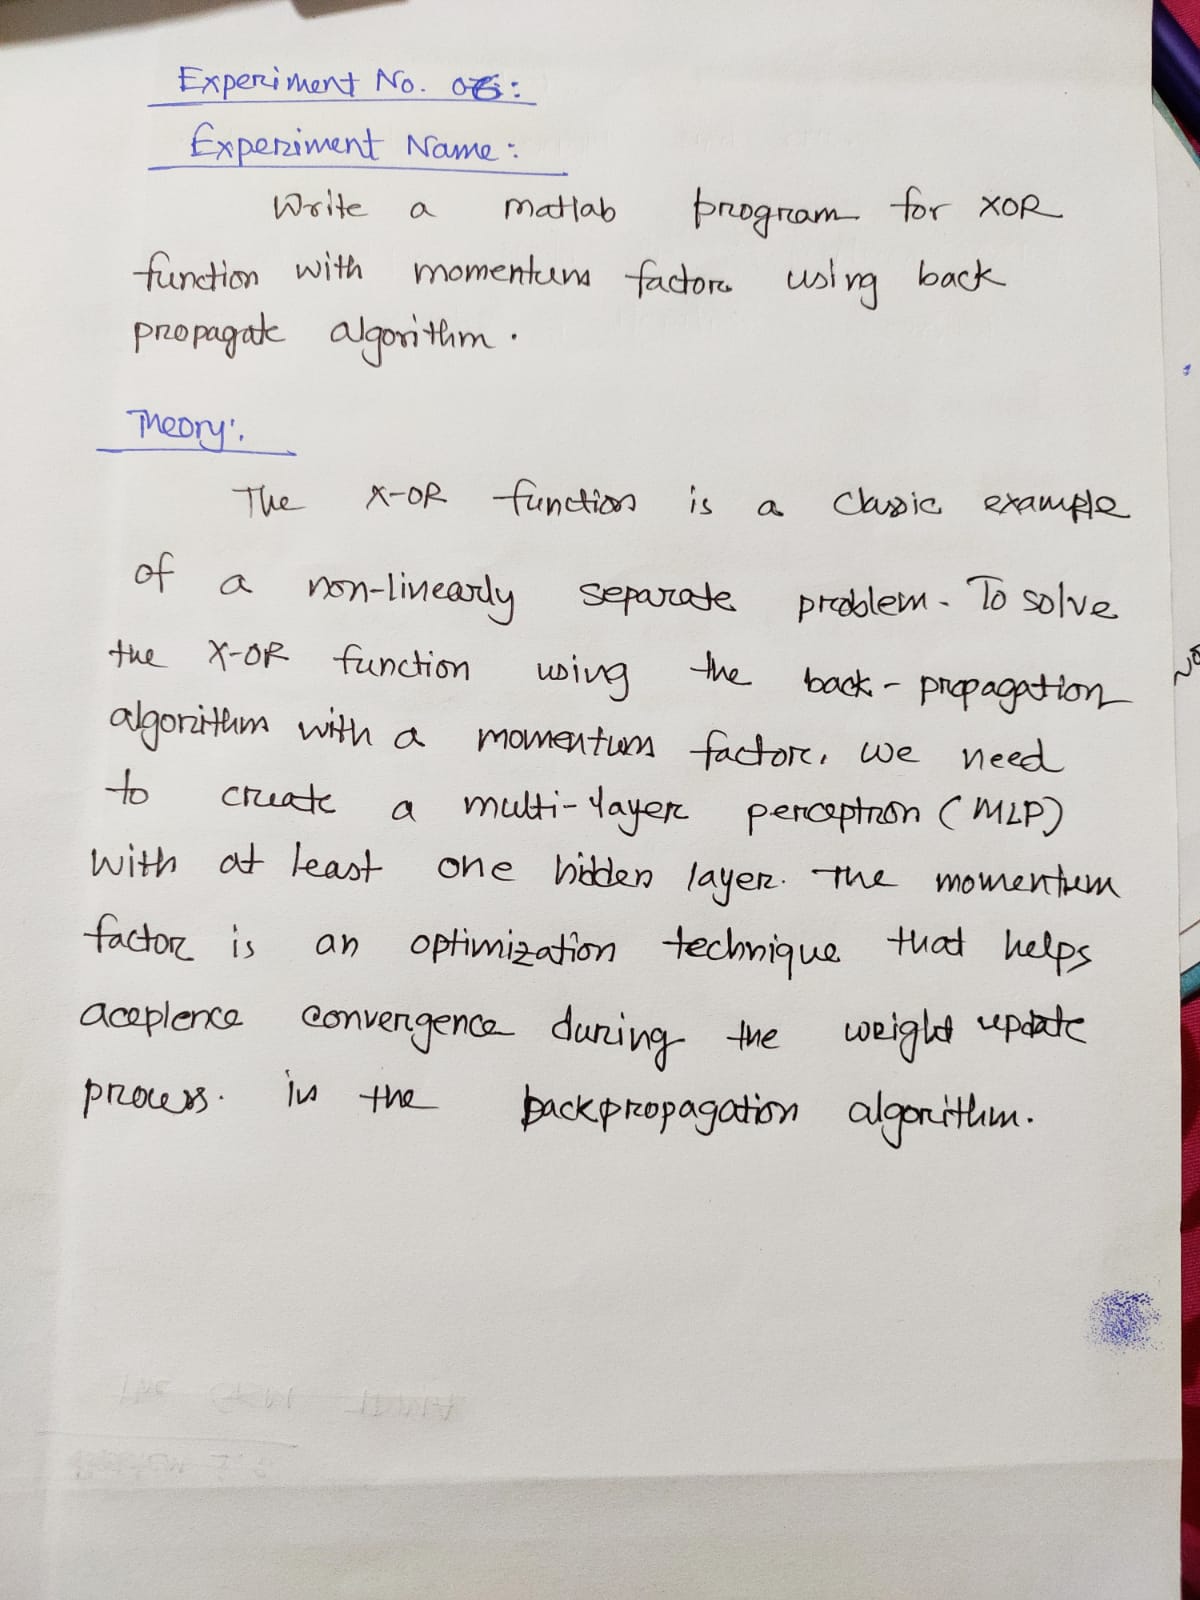 Experiment No. 06:
Experiment Name:
Write a matlab program for XOR
function with momentum factor using back
propagate algorithm.
Theory:
The X-OR function is a classic example
of a non-linearly separate problem. To solve
the X-OR function using the back-propagation
algorithm with a momentum factor, we need
to create a multi-layer perceptron (MLP)
with at least one hidden layer. The momentum
factor is an optimization technique that helps
aceplence convergence during the weight update
process. in the backpropagation algorithm.